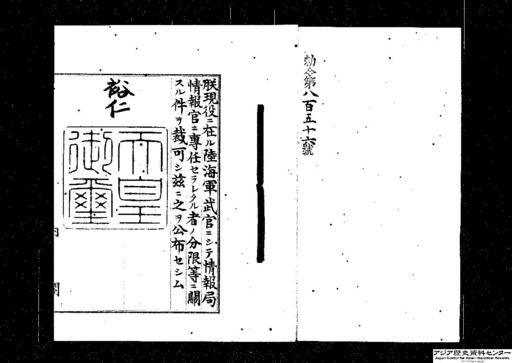 勅令第八百五十六號
朕現役ニ在ル陸海軍武官ニシテ情報局
情報官ニ專任セラレタル者ノ分限等ニ關
スル件ヲ裁可シ茲ニ之ヲ公布セシム
裕仁
天皇
御璽
アジア歴史資料センター
Japan Center for Asian Historical Records